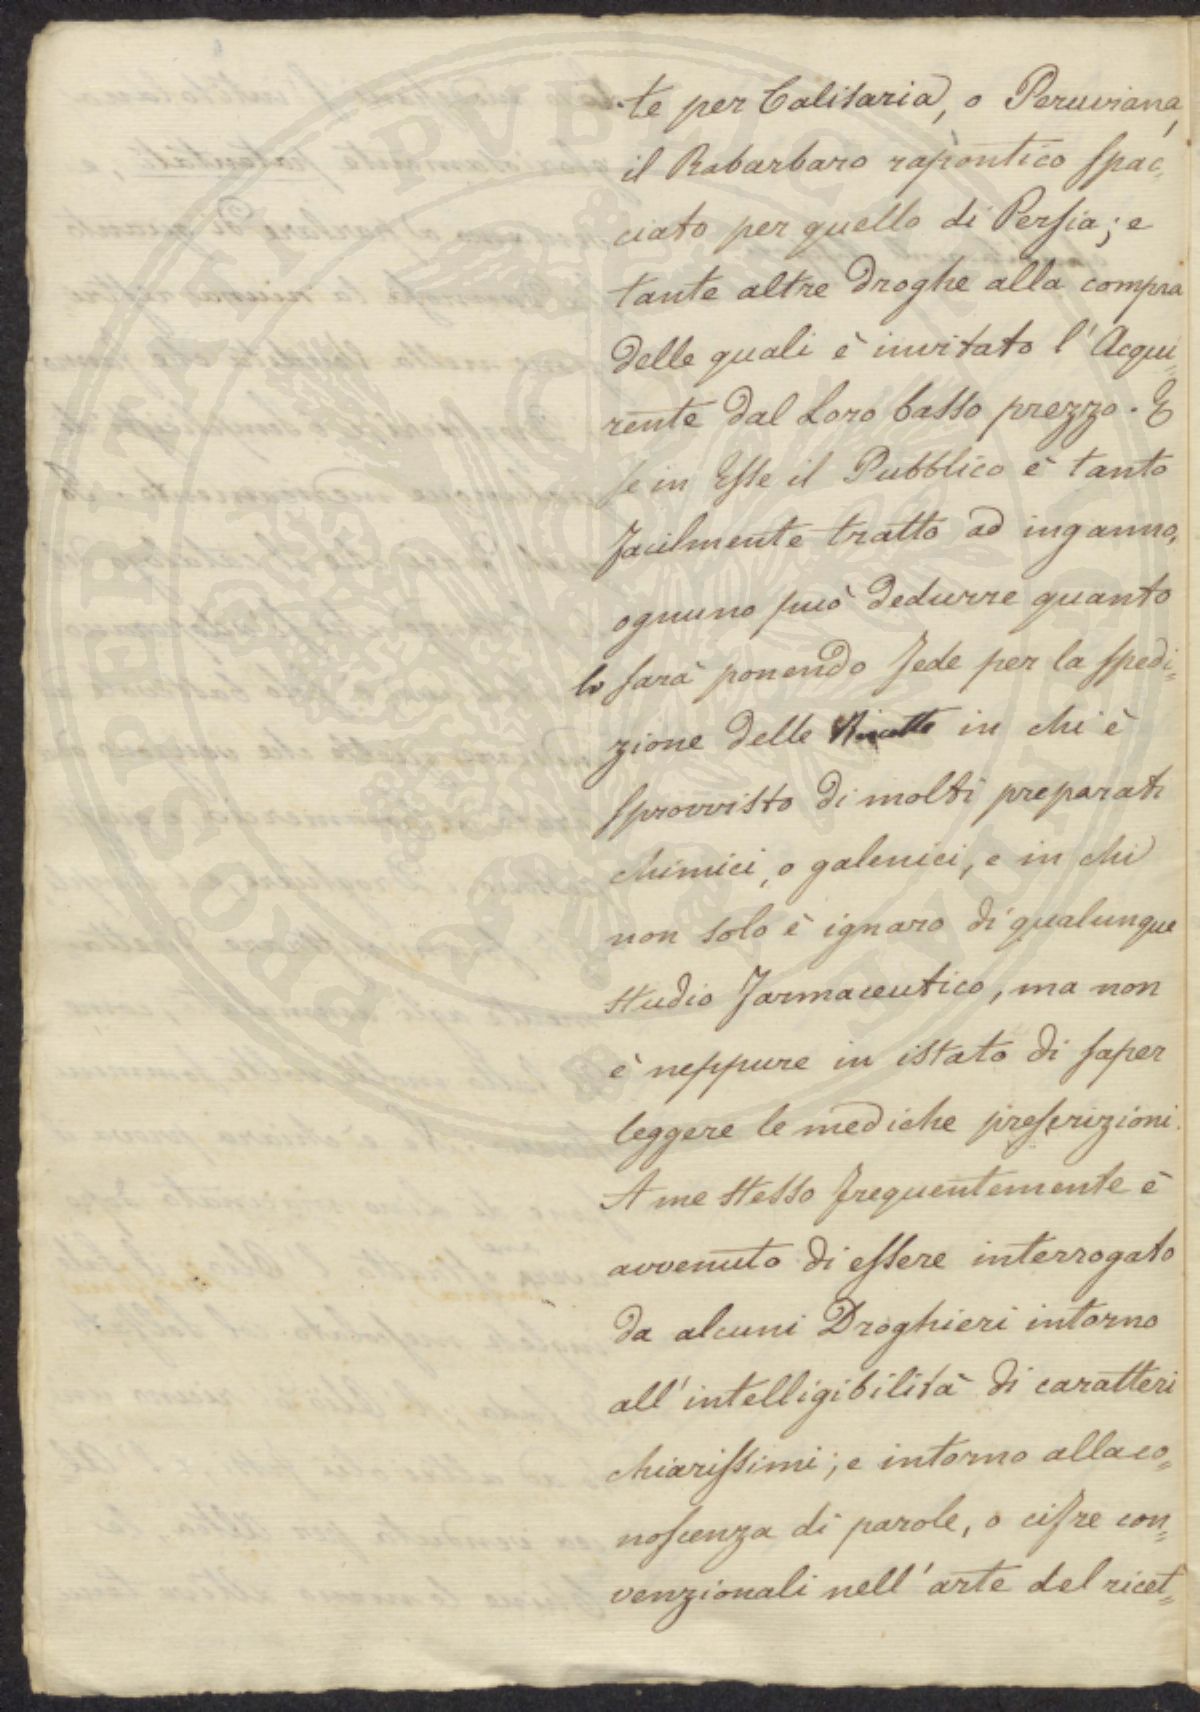 te per Calisaria, o Peruviana,
il Rabarbaro rapontico spac„
ciato per quello di Persia; e
tante altre Droghe alla compra
delle quali è invitato l'Acqui„
rente dal Loro basso prezzo. E
se in Esse il Pubblico è tanto
facilmente tratto ad inganno,
ognuno può dedurre quanto
lo sarà ponendo fede per la spedi„
zione delle Ricette in chi è
sprovvisto di molti preparati
chimici, o galenici, e in chi
non solo è ignaro di qualunque
studio Farmaceutico, ma non
è neppure in istato di saper
leggere le mediche prescrizioni.
A me stesso frequentemente è
avvenuto di essere interrogato
da alcuni Droghieri intorno
all'intelligibilità di caratteri
chiarissimi; e intorno alla co„
noscenza di parole, o cifre con„
venzionali nell'arte del ricet„
PROSPERITATI PVBLICAE